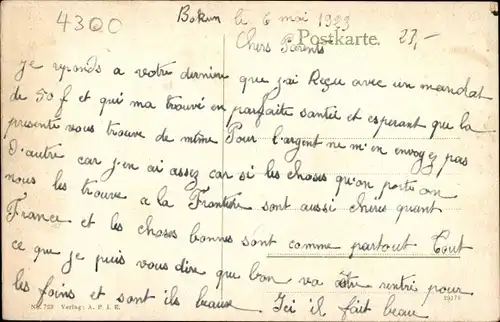 4300
Bokum le 6 mai 1923
Chers Parents
Postkarte.
23,-
Je reponds a votre derniere que j'ai Reçu avec un mandat
de 50 f et qui ma trouvé en parfaite santié et esperant que la
presenté vous trouve de même Pour l'argent ne m'en envoyez pas
D'autre car j'en ai assez car si les choses qu'on porte on
nous les trouve a la Frontière sont aussi chères quant
France et les choses bonnes sont comme partout Tout
ce que je puis vous dire que bon va être rentré pour
les foins et sont ils beaux. Ici il fait beau
Nr. 729 Verlag: A. P. i. E.